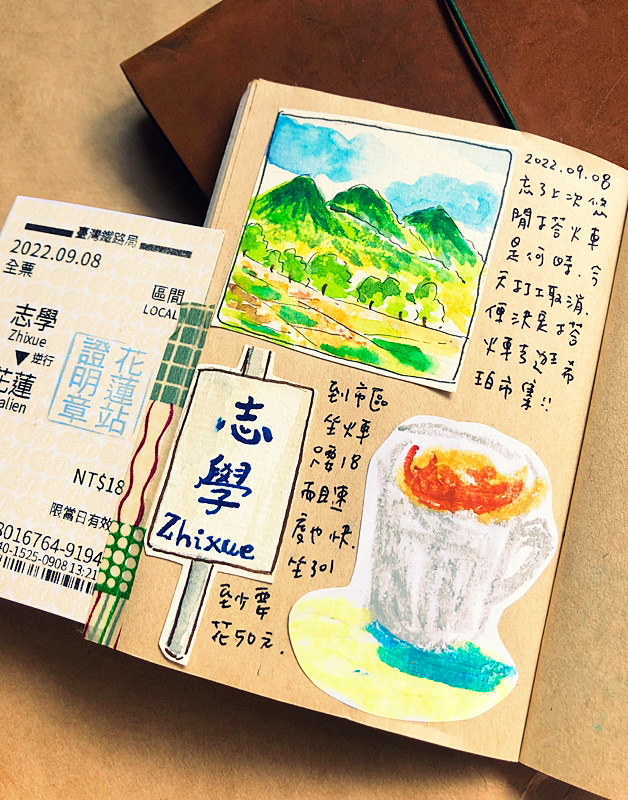 臺灣鐵路局
2022.09.08
全票
區間
LOCAL
志學
Zhixue
▼逆行
花蓮
alien
花蓮站
證明章
NT$18
限當日有效
8016764-9194
40-1525-0908 13:21
2022.09.08
忘了上次悠
閒搭火車
是何時.今
天打工取消.
便決定搭
火車去逛希
珀市集!!
志
學
Zhixue
到市區
坐火車
只要18
而且速
度也快.
坐301
至少要
花50元.